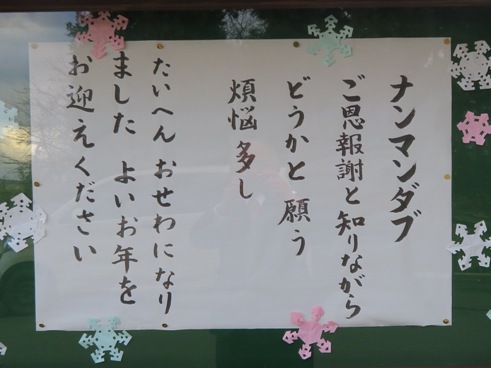 ナンマンダブ
ご恩報謝と知りながら
どうかと願う
煩悩多し
たいへん おせわになり
ました よいお年を
お迎えください